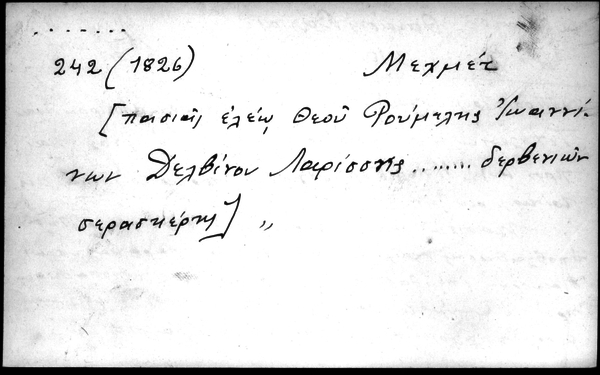 .......
242 (1826) Μεχμέτ
[πασιᾶς ἐλέῳ Θεοῦ Ρούμελης Ἰωαννί-
νων Δελβίνου Λαρίσσης ........ δερβενιῶν
σερασκέρης] „